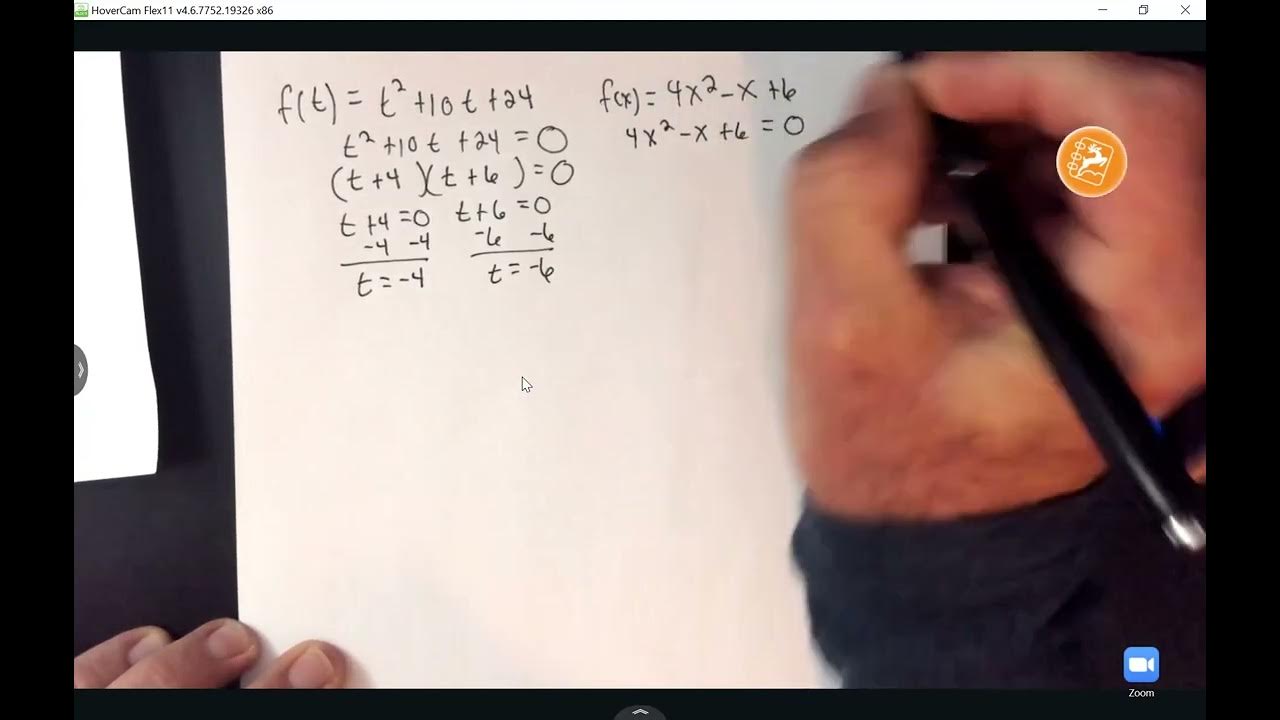 HoverCam Flex11 v4.6.7752.19326 x86
f(t) = t² + 10t + 24
t² + 10t + 24 = 0
(t + 4)(t + 6) = 0
t + 4 = 0 t + 6 = 0
-4 -4 -6 -6
t = -4 t = -6
f(x) = 4x² - x + 6
4x² - x + 6 = 0
Zoom